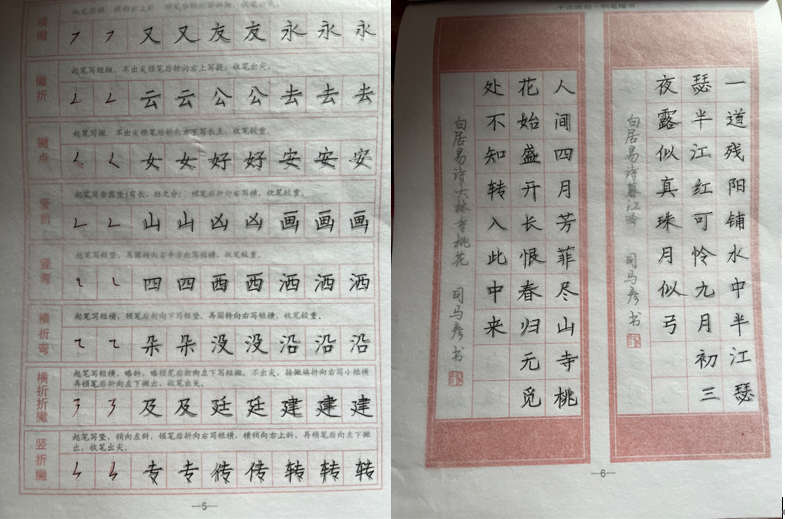 横撇
又 又 友 友 永 永 永
撇折
起笔写短撇，不出尖顿笔后折向右上写提，收笔出尖。
云 云 公 公 去 去 去
撇点
起笔写撇，不出尖顿笔后折向右下写长点，收笔较重。
女 女 好 好 安 安 安
竖折
起笔写垂露竖(有长、短之分)，顿笔后折向右写横，收笔较重。
山 山 凶 凶 画 画 画
竖弯
起笔写短竖，再圆转向右平方向写短横，收笔较重。
四 四 西 西 洒 洒 洒
横折弯
起笔写短横，顿笔后折向下写短竖，再圆转向右写短横，收笔较重。
朵 朵 没 没 沿 沿 沿
横折折撇
起笔写短横，略斜，略顿笔后折向左下写短撇，不出尖，接撇端折向右写小短横
再顿笔后折向左下撇出，收笔出尖。
及 及 廷 廷 建 建 建
竖折撇
起笔写竖，稍向左斜，顿笔后折向右写短横，横稍向右上斜，再顿笔后向左下撇
出，收笔出尖。
专 专 传 传 转 转 转
—5—
一道残阳铺水中半江瑟
瑟半江红可怜九月初三
夜露似真珠月似弓
白居易诗暮江吟 司马彦书
人间四月芳菲尽山寺桃
花始盛开长恨春归无觅
处不知转入此中来
白居易诗大林寺桃花 司马彦书
—6—